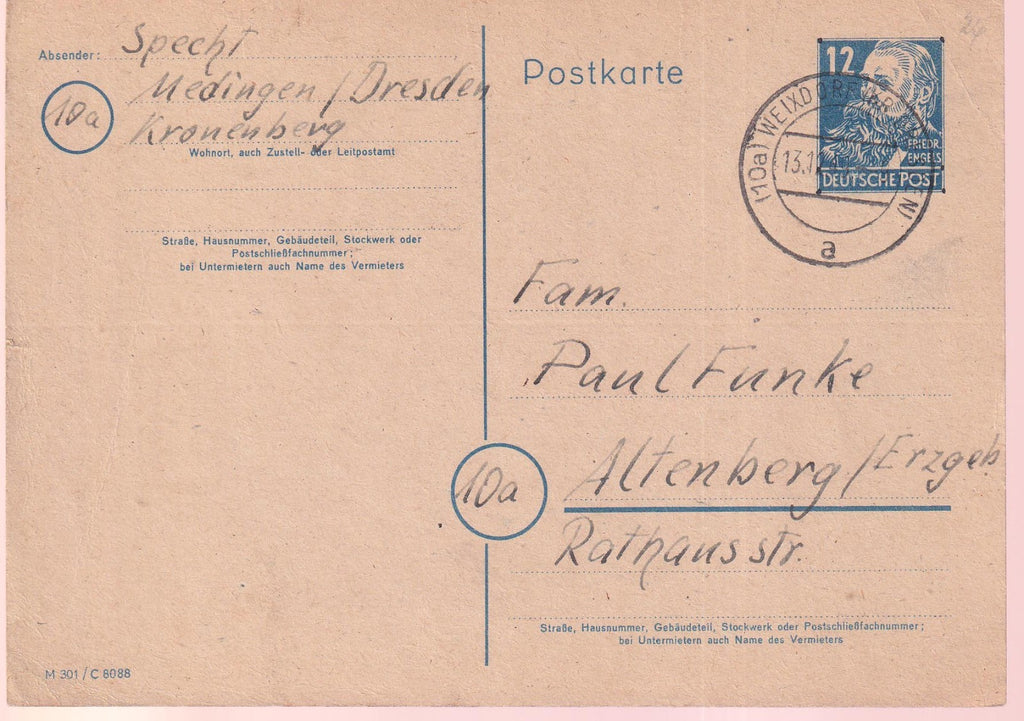 Absender: Specht
Medingen/Dresden
10a
Kronenberg
Wohnort, auch Zustell- oder Leitpostamt
Straße, Hausnummer, Gebäudeteil, Stockwerk oder
Postschließfachnummer;
bei Untermietern auch Name des Vermieters
M 301/C 8088
Postkarte
12
FRIEDR.
ENGELS
DEUTSCHE POST
(10a) WEIXDORF
a
24
Fam.
Paul Funke
10a
Altenberg/Erzgeb
Rathausstr.
Straße, Hausnummer, Gebäudeteil, Stockwerk oder Postschließfachnummer;
bei Untermietern auch Name des Vermieters